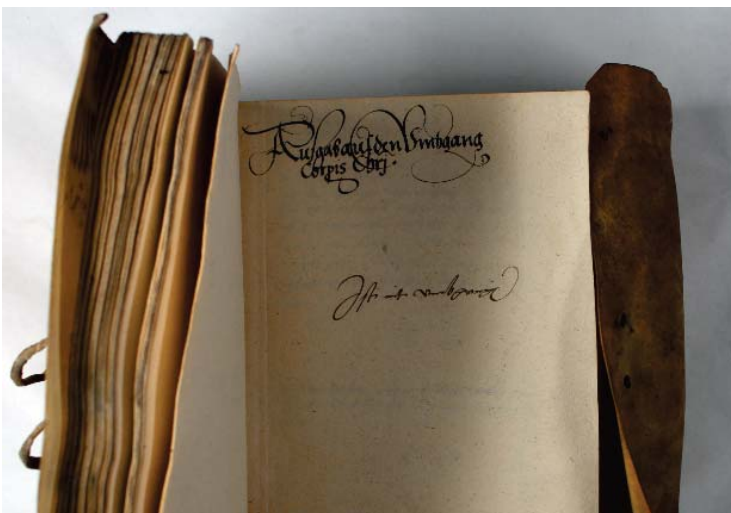 Ausgab auf den Vmbgang
Corpis Chrj.
Ist nit vmbgangen